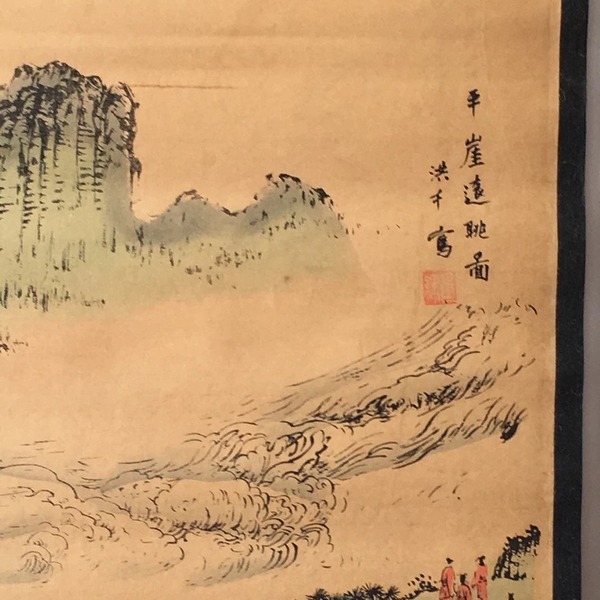 平崖遠眺圖
洪千寫